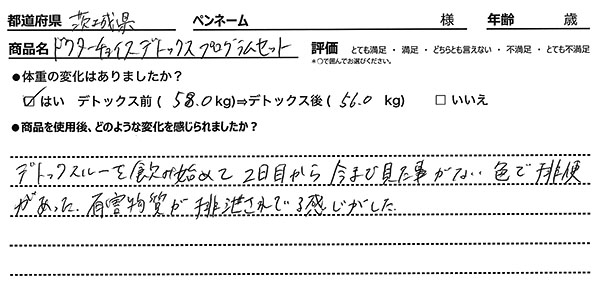 都道府県 茨城県 ペンネーム 様 年齢 歳
商品名 ドクターチョイスデトックスプログラムセット 評価 とても満足 ・ 満足 ・ どちらとも言えない ・ 不満足 ・ とても不満足
*○で囲んでお選びください。
●体重の変化はありましたか？
☑はい デトックス前 ( 58.0 kg)⇒デトックス後 ( 56.0 kg) □いいえ
●商品を使用後、どのような変化を感じられましたか？
デトックスルーを飲み始めて2日目から今まで見た事がない色で排便
があった。有害物質が排泄されている感じがした。